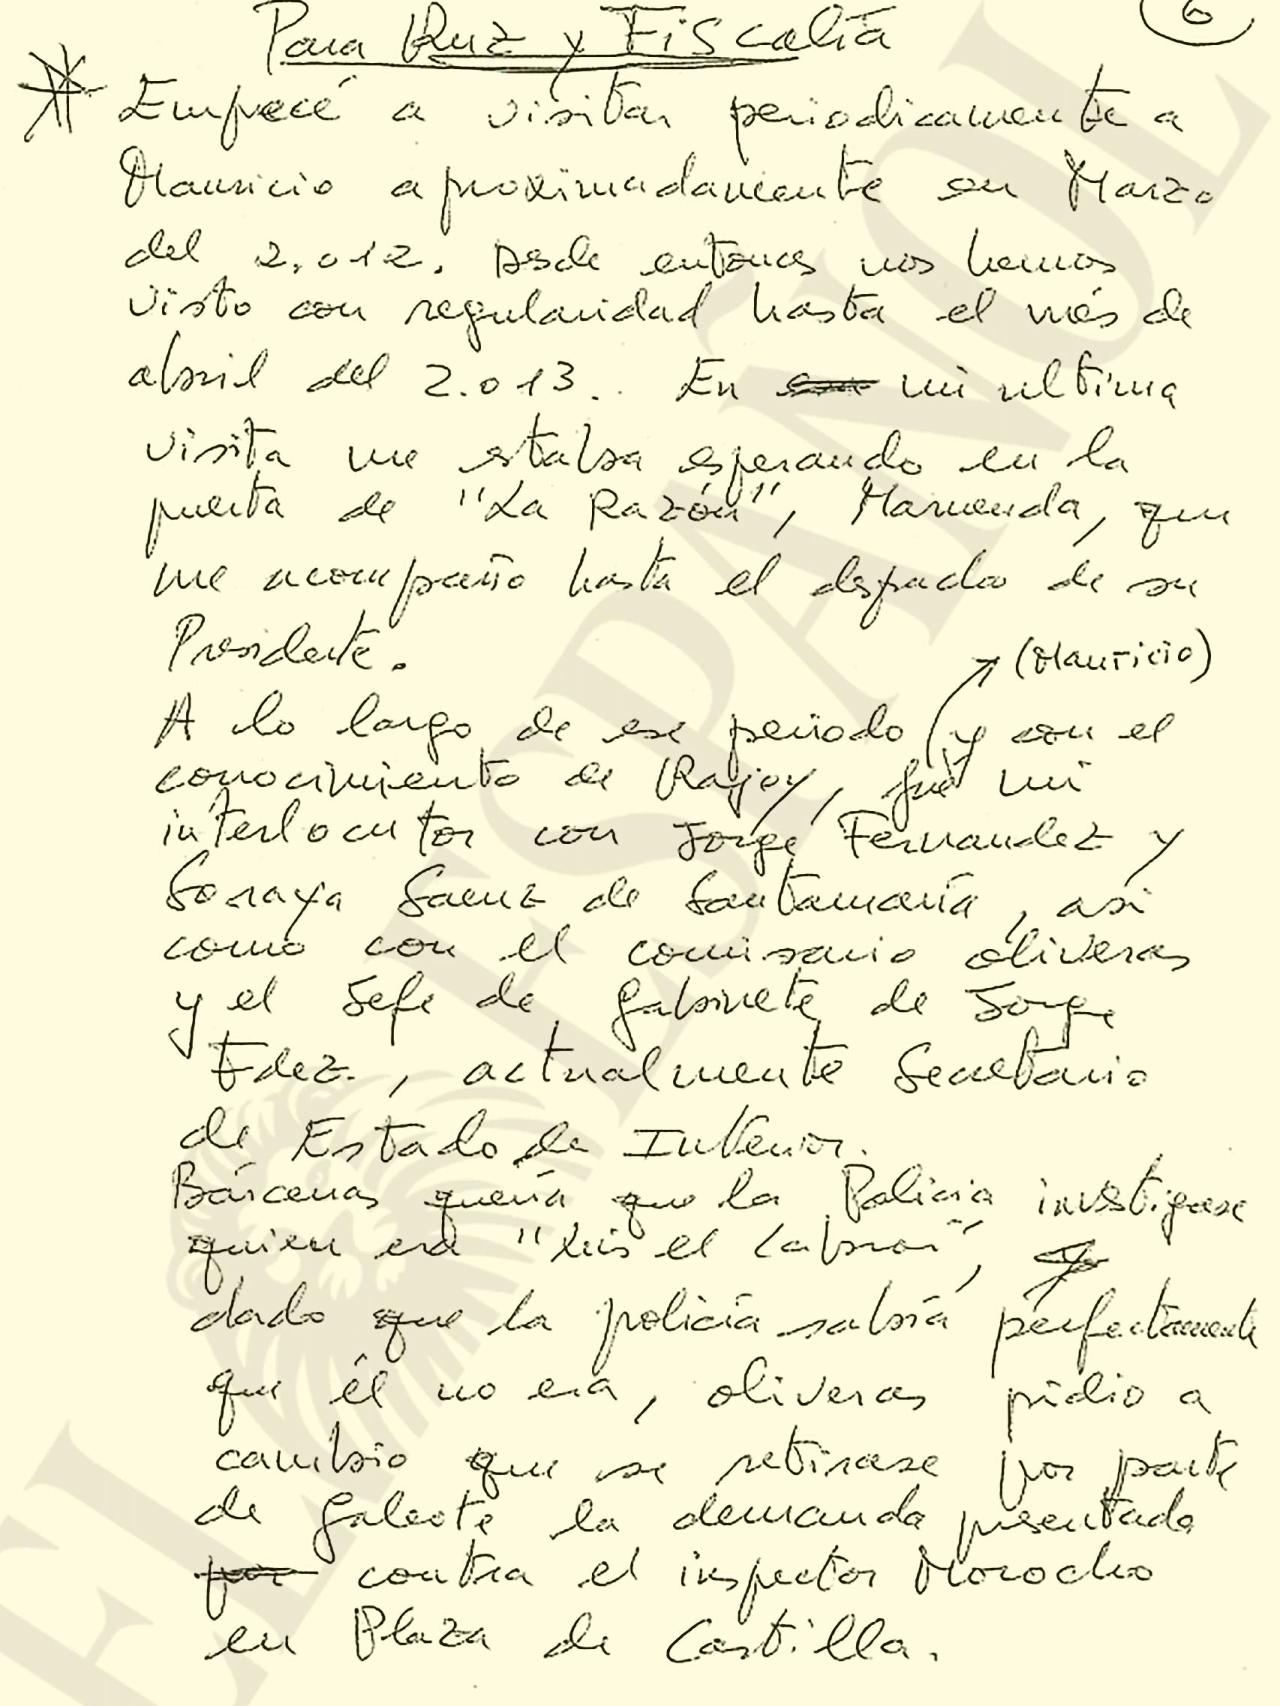 6
Para Ruz y Fiscalía
* Empecé a visitar periodicamente a
Mauricio aproximadamente en Marzo
del 2.012. Desde entonces nos hemos
visto con regularidad hasta el més de
abril del 2.013. En mi ultima
visita me estaba esperando en la
puerta de "La Razón", Maruenda, que
me acompaño hasta el despacho de su
Presidente.
(Mauricio)
A lo largo de ese periodo y con el
conocimiento de Rajoy, fué mi
interlocutor con Jorge Fernandez y
Soraya Saenz de Santamaría, asi
como con el comisario oliveras
y el Jefe de gabinete de Jorge
Fdez., actualmente Secretario
de Estado de Interior.
Bárcenas quería que la Policia investigase
quien era "Luis el Cabron",
dado que la policía sabía perfectamente
que él no era, oliveras pidio a
cambio que se retirase por parte
de galeote la demanda presentada
por contra el inspector Morocho
en Plaza de Castilla.
EL ESPAÑOL